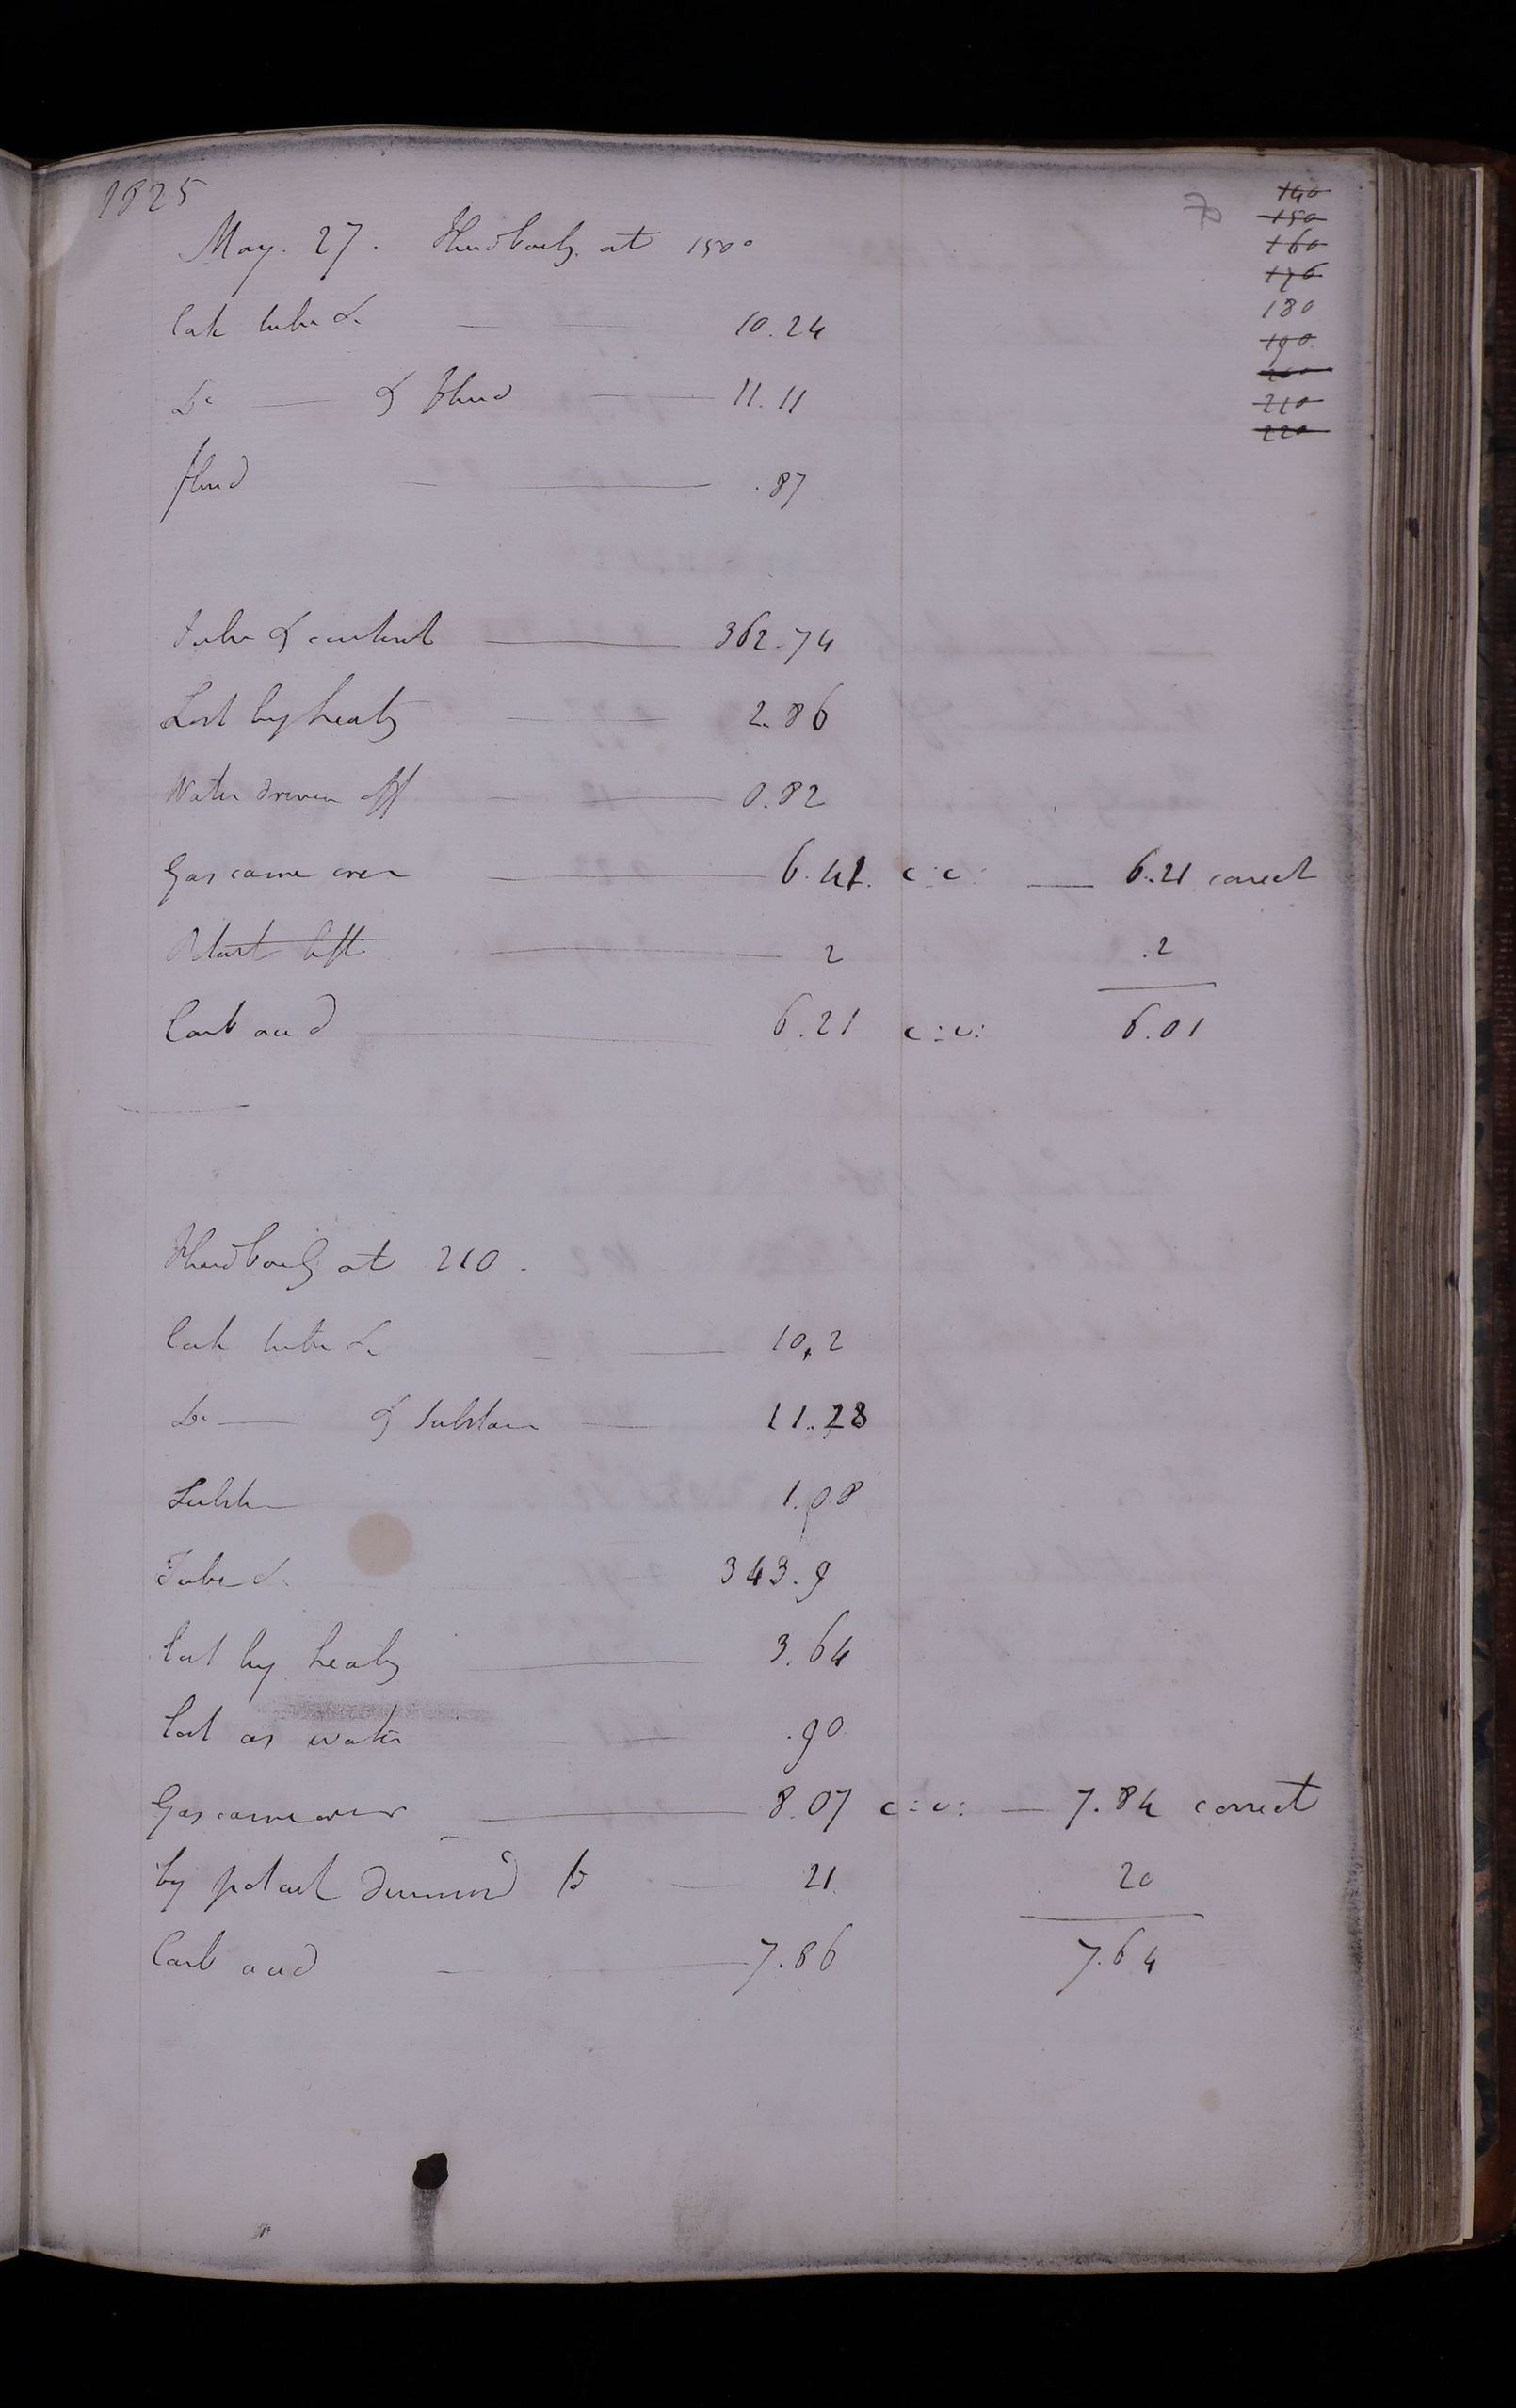 1825
7
140
150
160
170
180
190
200
210
220
May. 27. Fluid boilg. at 150°
Cork tube &c 10.24
Do — & fluid — 11.11
fluid — .87
Tube & contents — 362.74
Lost by heatg — 2.86
Water driven off — 0.82
Gas came over — 6.41. c:c: — 6.21 correct
Potash left — 2 .2
Carb acid 6.21 c:c: 6.01
Fluid boilg at 210.
Cork tube &c — 10.2
Do — & substan — 11.28
Substan 1.08
Tube &c 343.9
lost by heatg — 3.64
lost as water — .90
Gas came over — 8.07 c:c: — 7.84 correct
by potash diminisd to — 21 20
Carb acid — 7.86 7.64